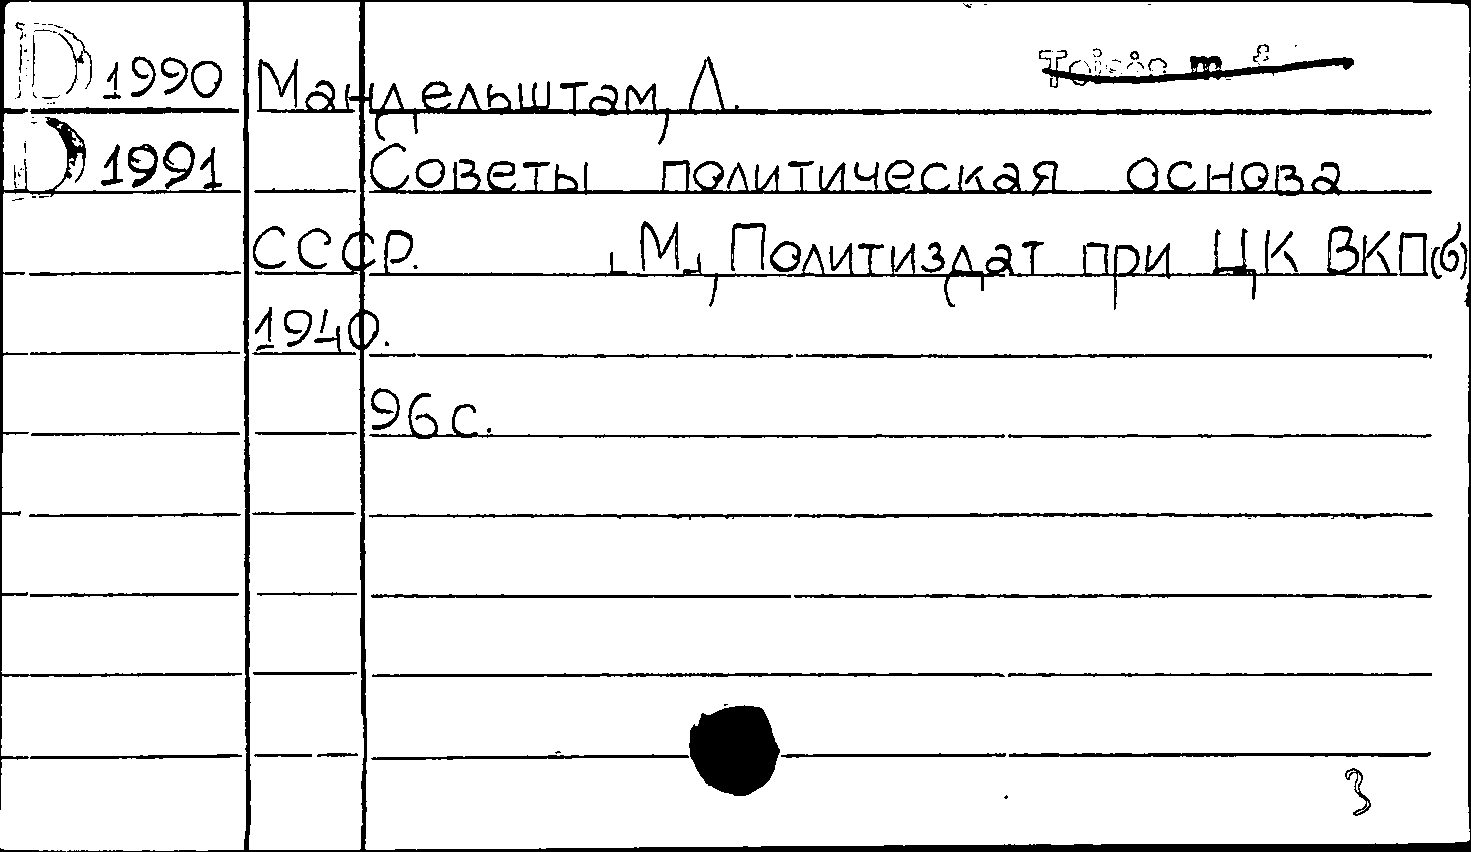 D 1990 Мандельштам, Л.
D 1991 Советы политическая основа
СССР. [М], Политиздат при ЦК ВКП(б)
1940.
96 с.
3